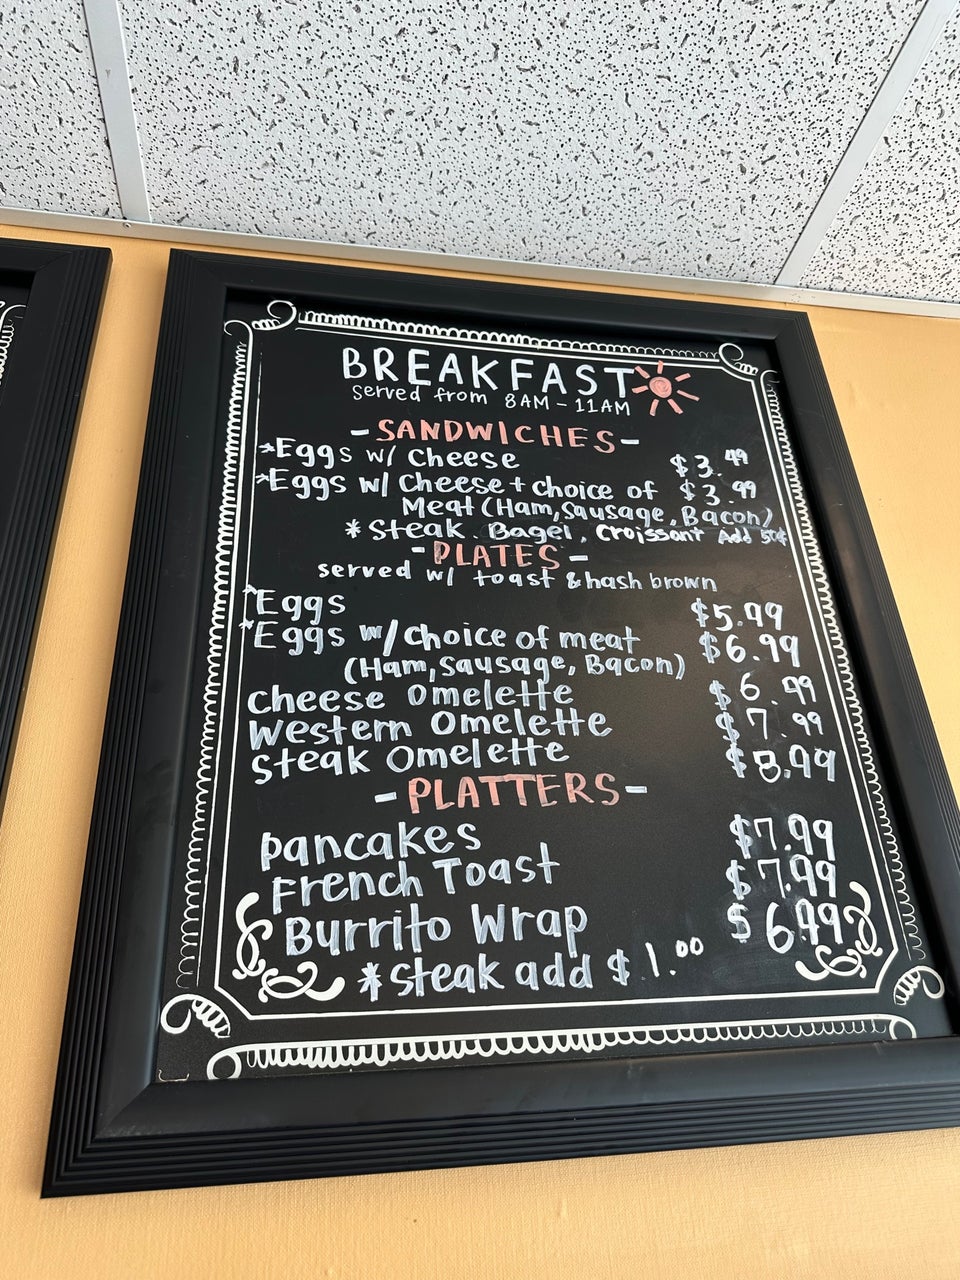 BREAKFAST
served from 8AM - 11AM
- SANDWICHES -
*Eggs w/ Cheese $3.49
*Eggs w/ Cheese + choice of $3.99
Meat (Ham, Sausage, Bacon)
* Steak. Bagel, Croissant Add 50¢
- PLATES -
served w/ toast & hash brown
*Eggs $5.99
*Eggs w/ choice of meat $6.99
(Ham, Sausage, Bacon)
Cheese Omelette $6.99
Western Omelette $7.99
Steak Omelette $8.99
- PLATTERS -
Pancakes $7.99
French Toast $7.99
Burrito Wrap $6.99
*steak add $1.00